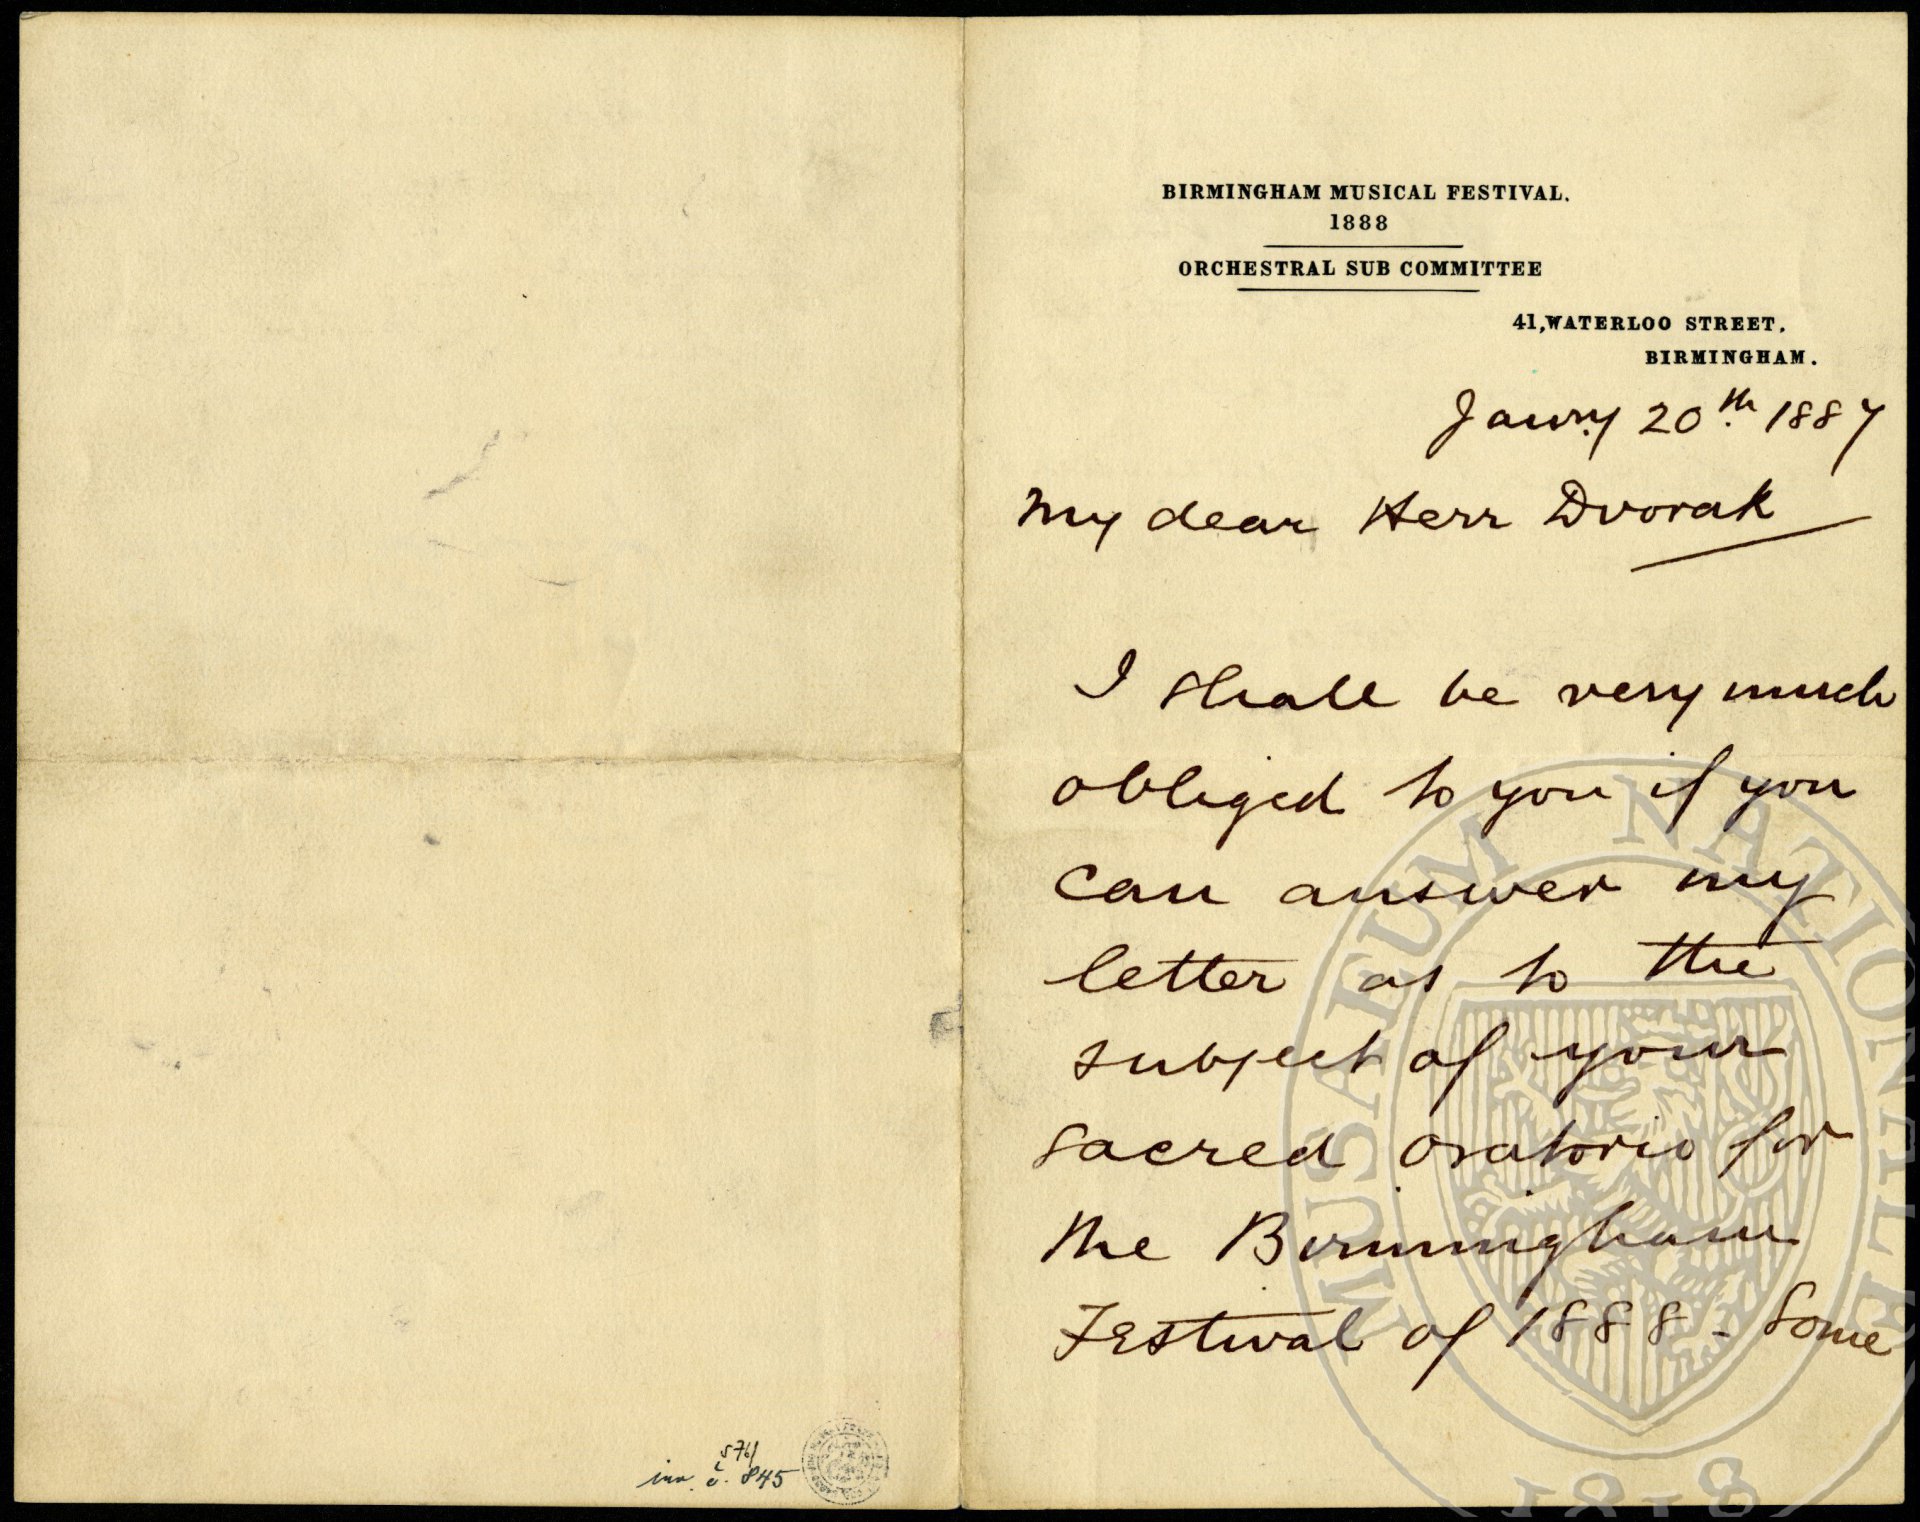 BIRMINGHAM MUSICAL FESTIVAL.
1888
ORCHESTRAL SUB COMMITTEE
41, WATERLOO STREET.
BIRMINGHAM.
Jany 20th. 1887
My dear Herr Dvorak
I shall be very much
obliged to you if you
can answer my
letter as to the
subject of your
sacred oratorio for
the Birmingham
Festival of 1888 - Some
inv. č. 845
MUSAEUM NATIONALE
1818